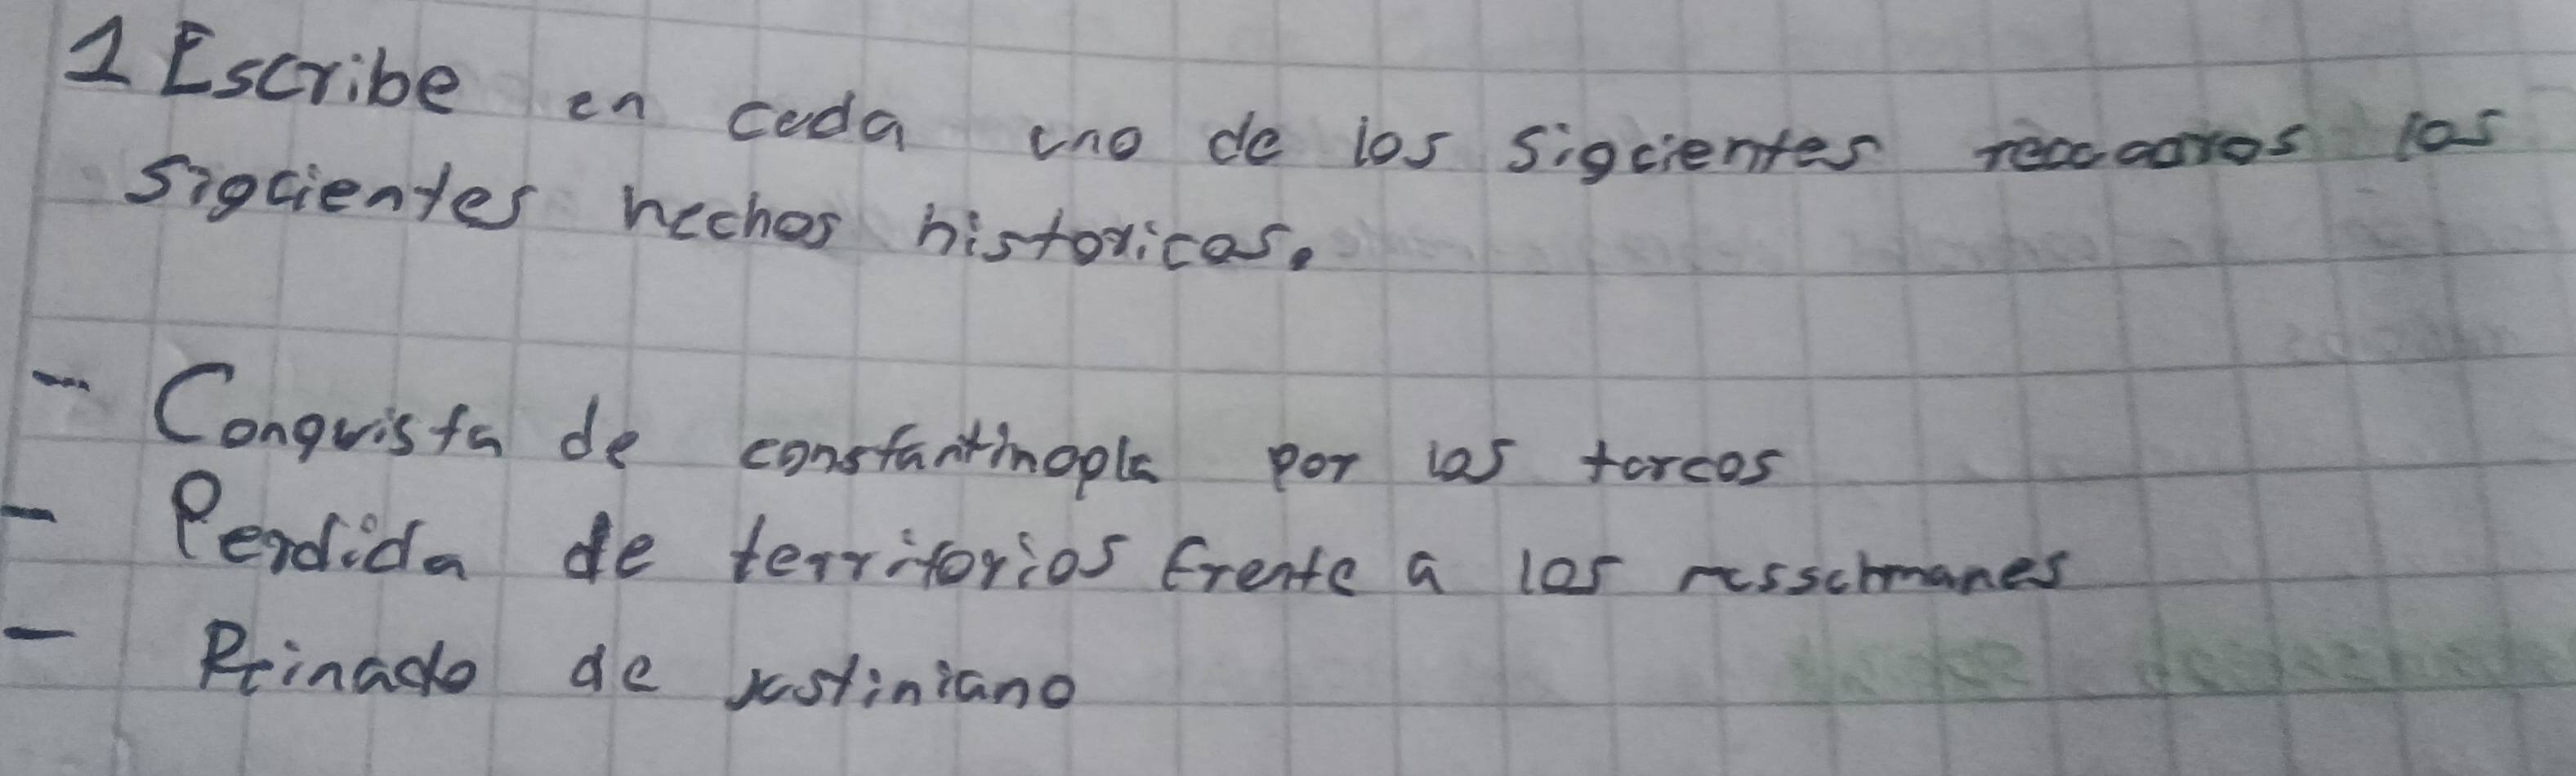 1 Escribe en cada uno de los siguientes recuadros los
siguientes hechos historicos.
- Conquista de constantinopla por los turcos
- Perdida de territorios frente a los
- Reinado de justiniano